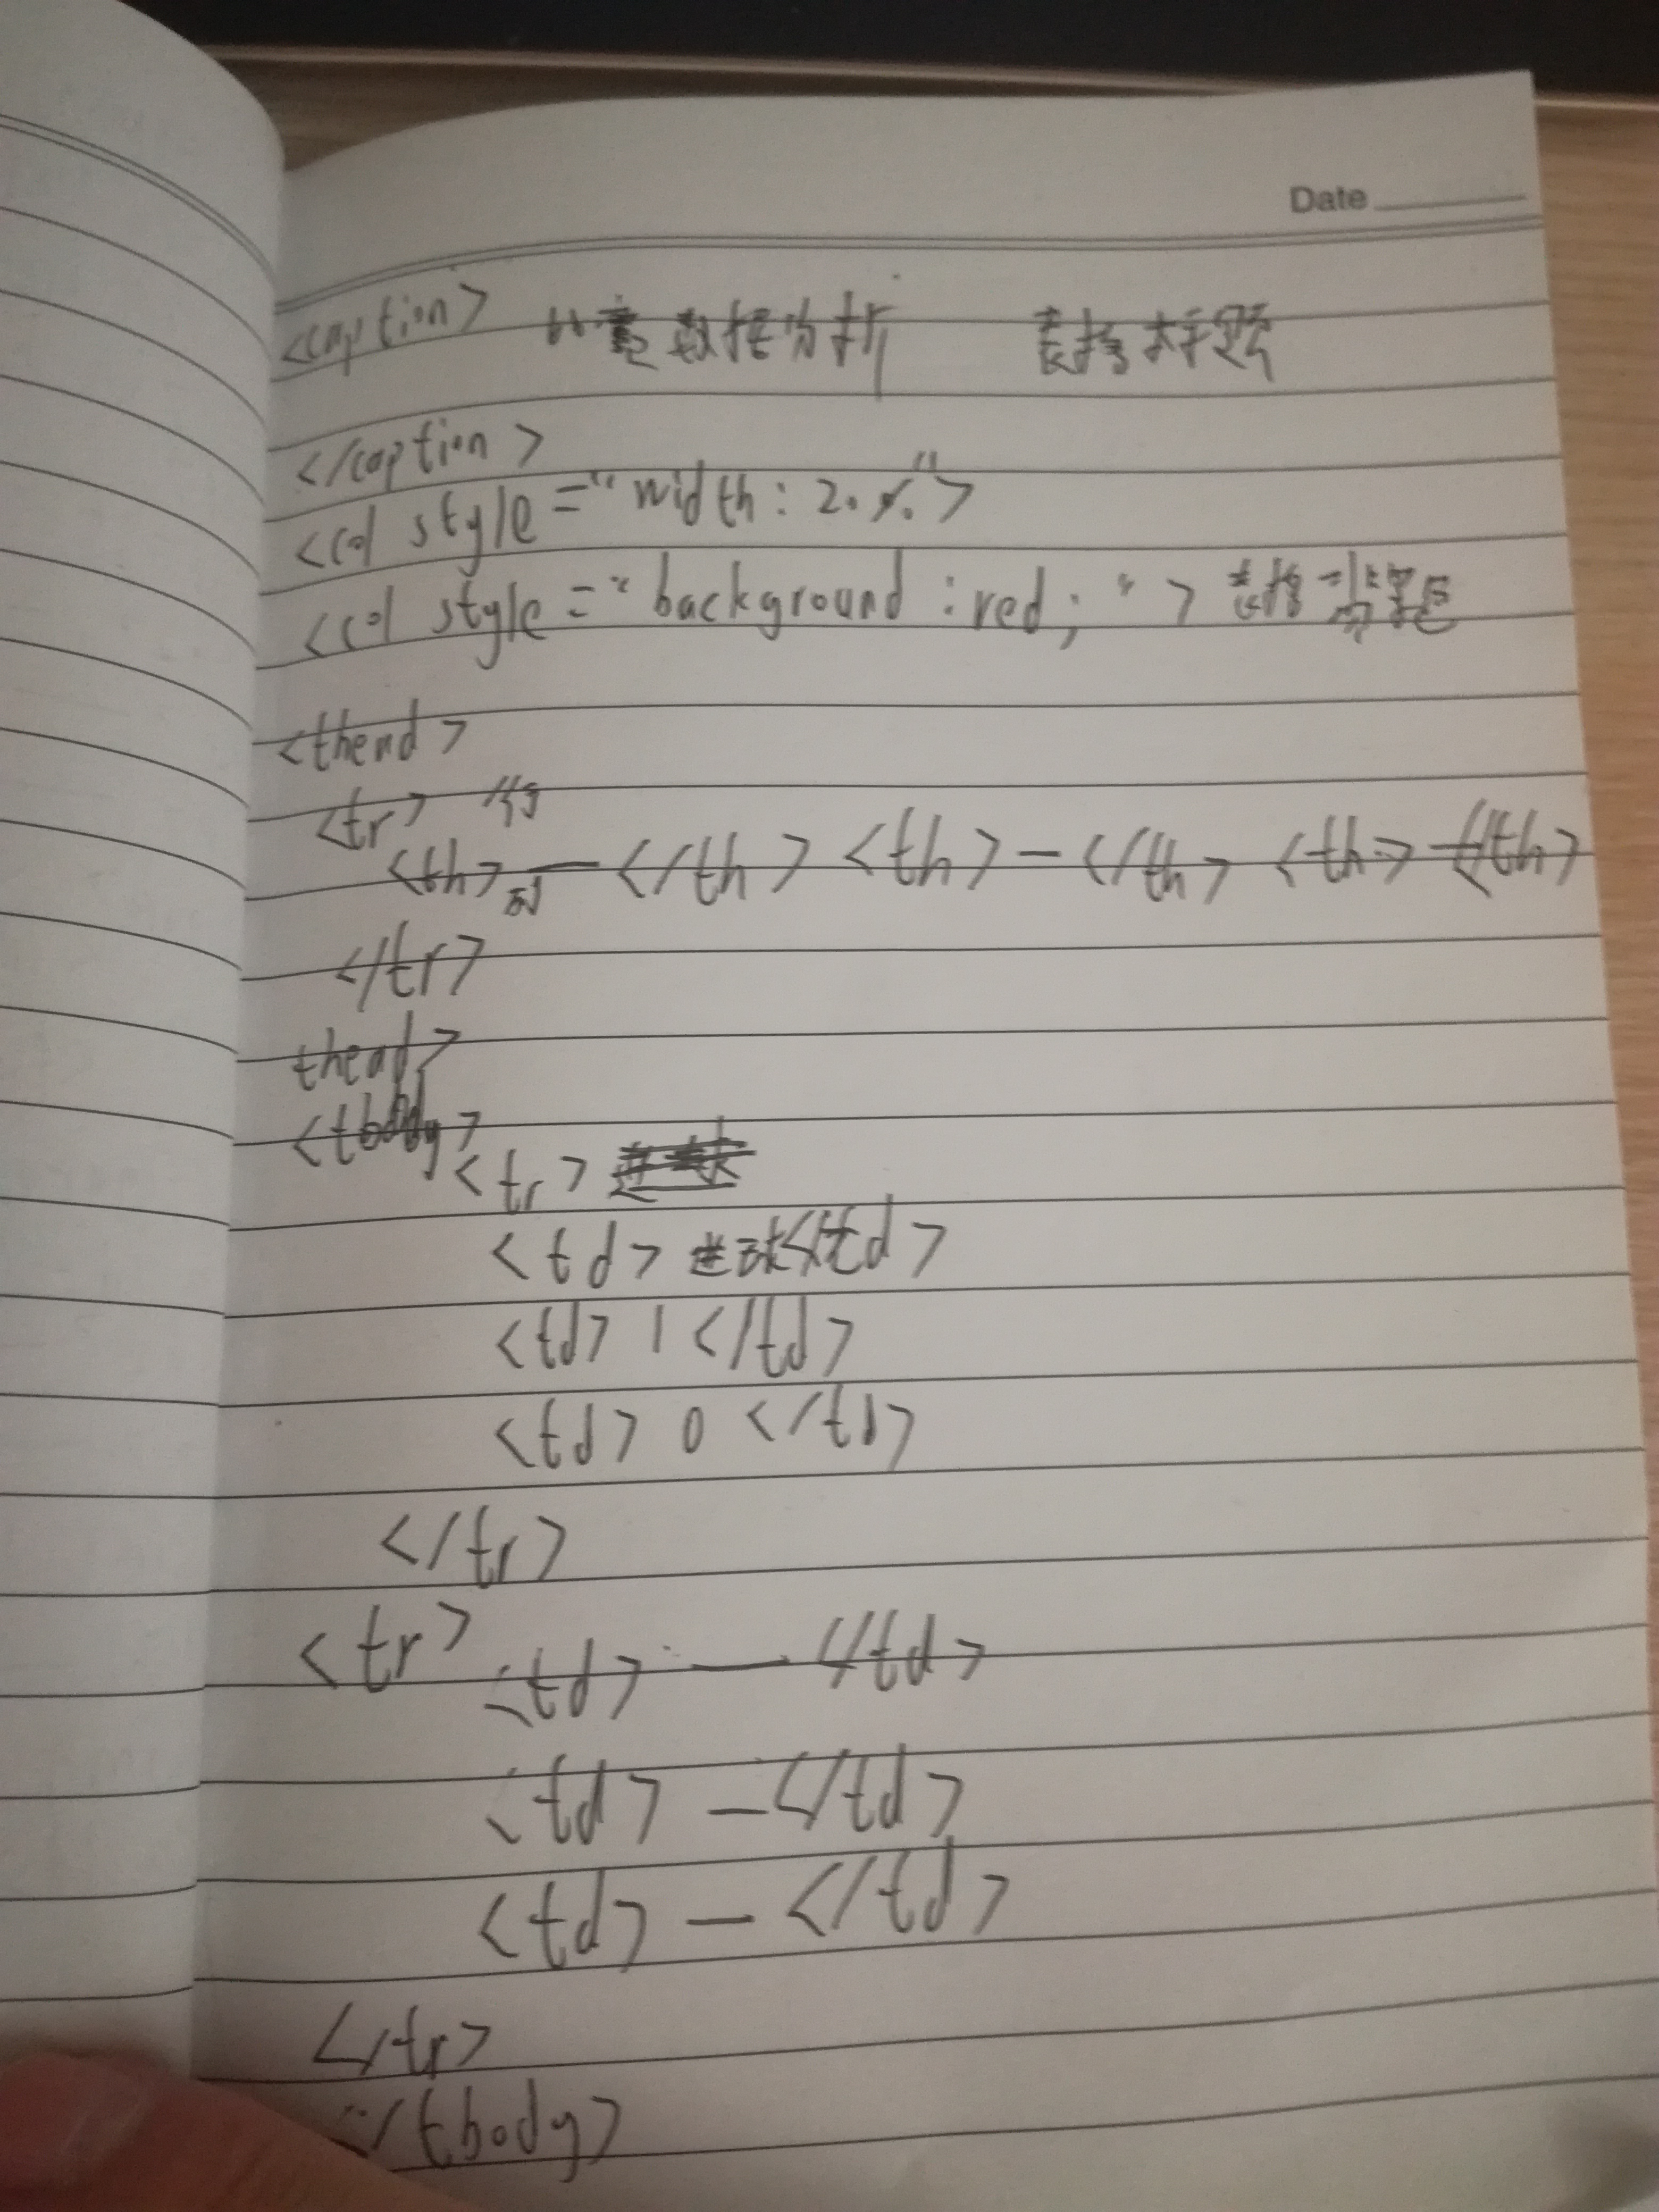 Date
<caption> 数据分析 表格标题
</caption>
<col style="width: 2.%">
<col style="background:red;">表格
<thead>
<tr> 行
<th>列—</th> <th>—</th> <th>—</th>
</tr>
thead>
<tbody>
<tr>
<td>进球</td>
<td>1</td>
<td>0</td>
</tr>
<tr>
<td>—</td>
<td>—</td>
<td>—</td>
</tr>
</tbody>